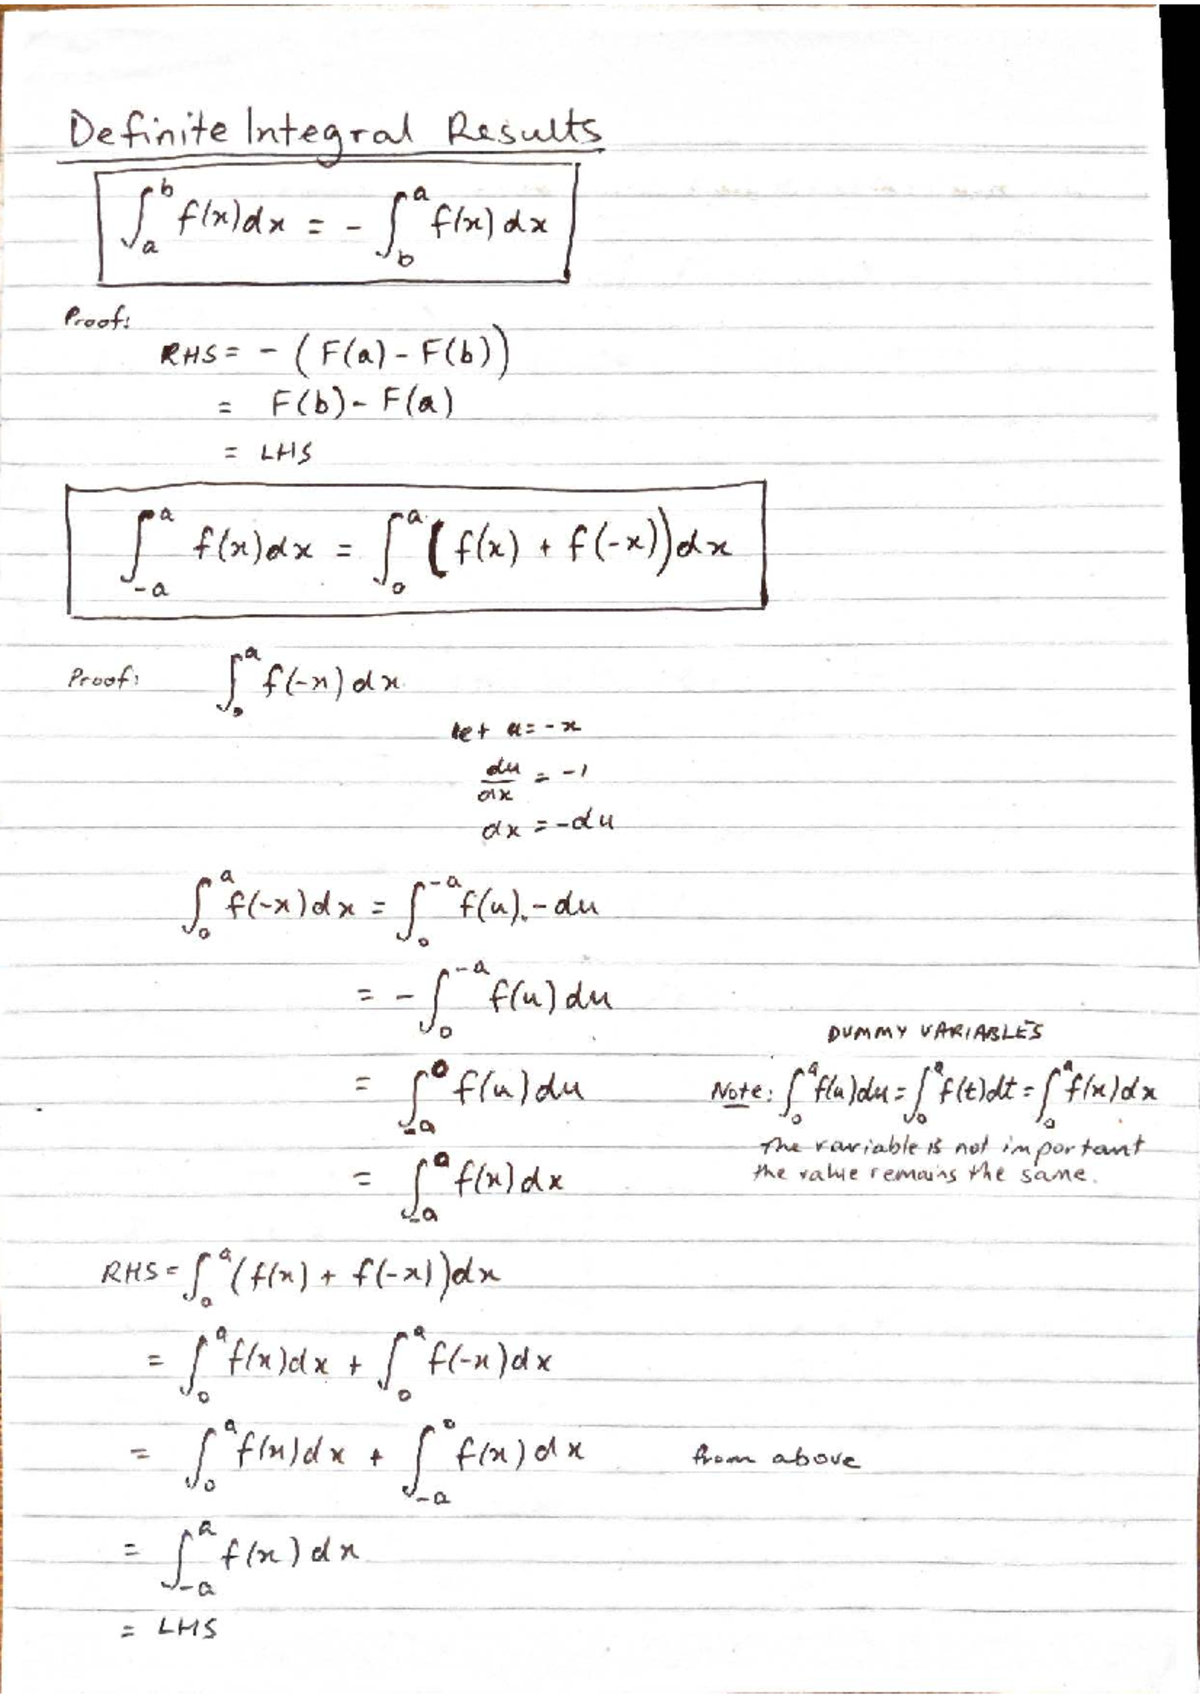 Definite Integral Results
∫_a^b f(x)dx = - ∫_b^a f(x) dx
Proof:
RHS = - (F(a) - F(b))
= F(b) - F(a)
= LHS
∫_{-a}^a f(x)dx = ∫_0^a (f(x) + f(-x))dx
Proof: ∫_0^a f(-x) dx
let u = -x
du/dx = -1
dx = -du
∫_0^a f(-x)dx = ∫_0^{-a} f(u).-du
= - ∫_0^{-a} f(u) du
DUMMY VARIABLES
= ∫_{-a}^0 f(u) du
Note: ∫_0^a f(u)du = ∫_0^a f(t)dt = ∫_0^a f(x)dx
The variable is not important
the value remains the same.
= ∫_{-a}^0 f(x) dx
RHS = ∫_0^a (f(x) + f(-x))dx
= ∫_0^a f(x)dx + ∫_0^a f(-x)dx
= ∫_0^a f(x)dx + ∫_{-a}^0 f(x) dx from above
= ∫_{-a}^a f(x) dx
= LHS